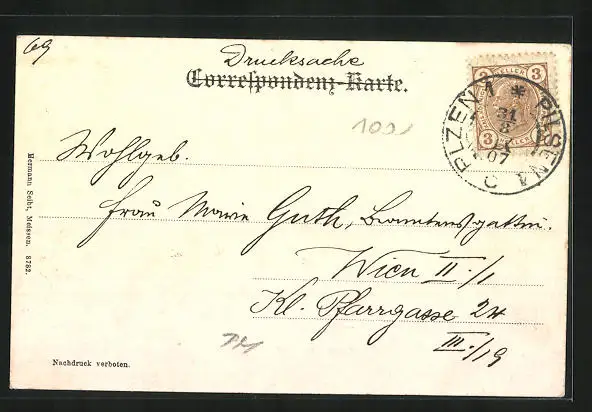 69
Drucksache
Correspondenz-Karte.
3 HELLER 3
3
PLZEN 1 * PILSEN 1
31
8
07
C
Wohlgeb.
Frau Marie Guth, Beamtensgattin.
Wien II./1
Kl. Pfarrgasse 24
III./19
Hermann Seibt, Meissen. 8782.
Nachdruck verboten.